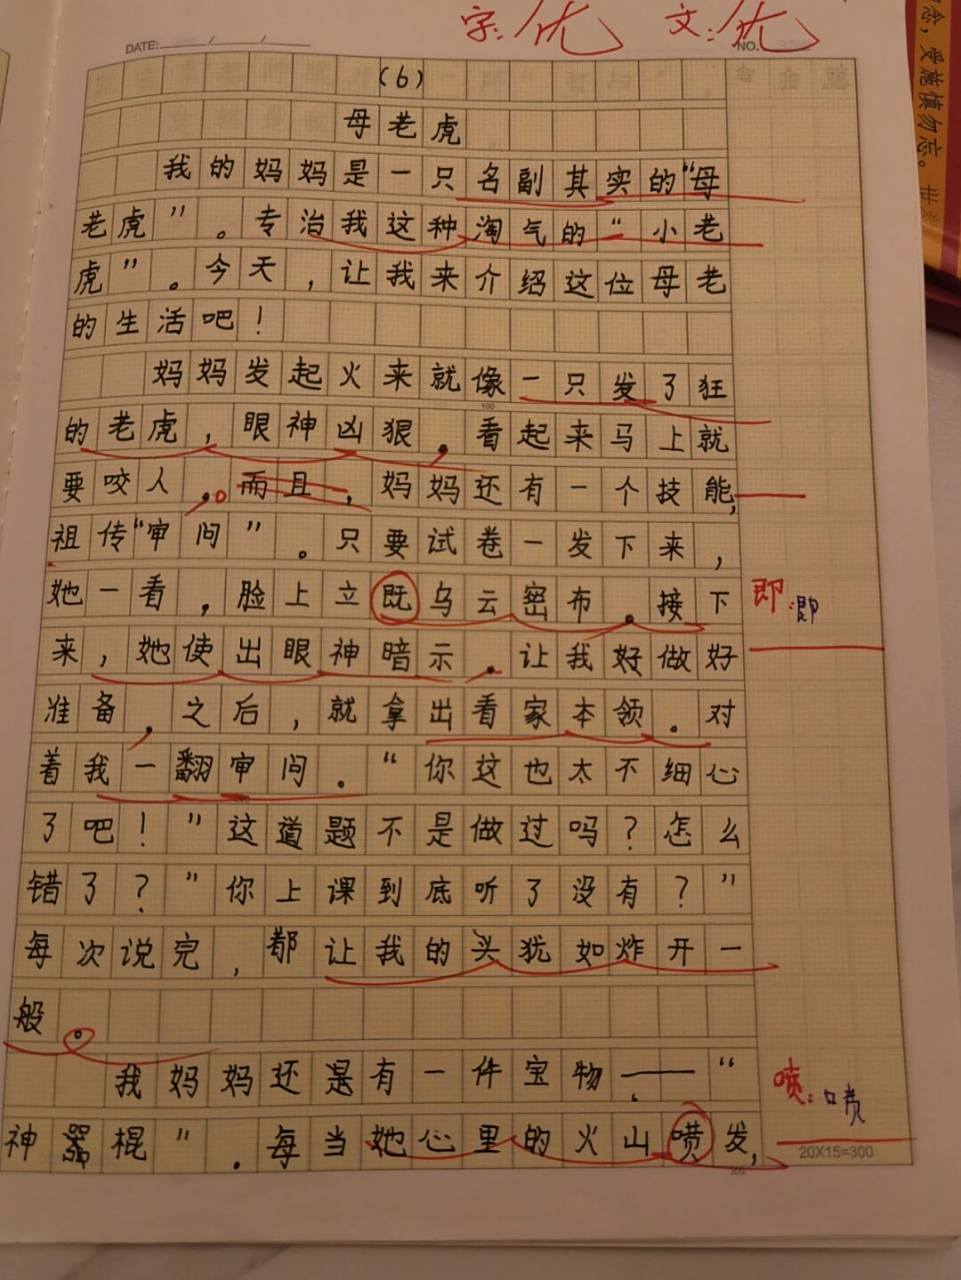 字:优 文:优
DATE: / / NO.
(6)
母老虎
我的妈妈是一只名副其实的“母
老虎”。专治我这种淘气的“小老
虎”。今天,让我来介绍这位母老
的生活吧!
妈妈发起火来就像一只发了狂
的老虎,眼神凶狠。看起来马上就
要咬人。而且,妈妈还有一个技能,
祖传“审问”。只要试卷一发下来,
她一看,脸上立既乌云密布。接下 即:即
来,她使出眼神暗示。让我好做好
准备,之后,就拿出看家本领。对
着我一翻审问。“你这也太不细心
了吧!”这道题不是做过吗?怎么
错了?”你上课到底听了没有?”
每次说完,都让我的头犹如炸开一
般。
我妈妈还是有一件宝物——“ 喷:喷
神器棍”.每当她心里的火山喷发,
20X15=300
念,受施慎勿忘。